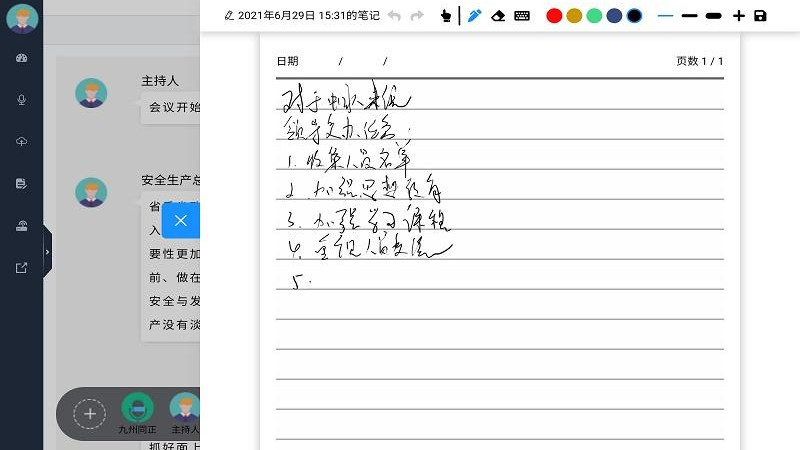 2021年6月29日 15:31的笔记
日期 / /
页数 1 / 1
对于
领导交办任务:
1. 收集人员名单
2. 加强思想教育
3. 加强学习课程
4. 重视人的交流
5.
主持人
会议开始
安全生产总
省
入
要性更加
前、做在
安全与发
产没有淡
九州同正
主持人
抓好面上